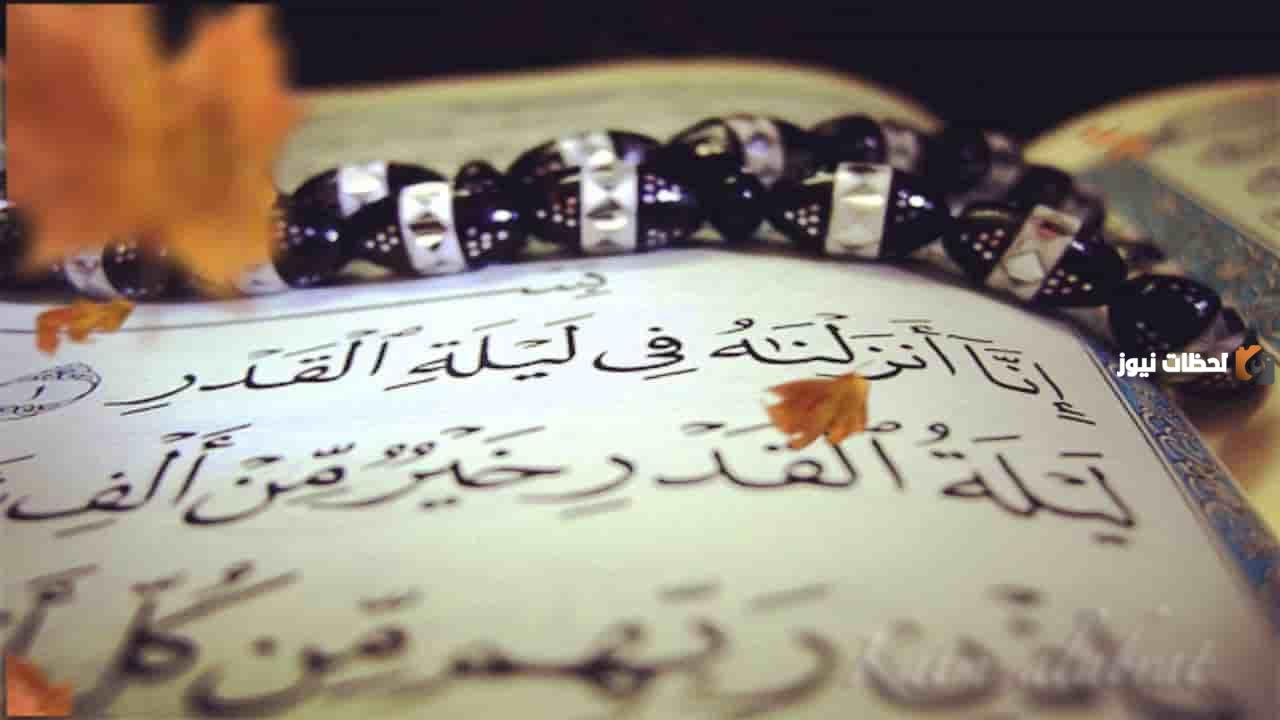 إِنَّآ أَنزَلْنَٰهُ فِى لَيْلَةِ ٱلْقَدْرِ ١
لَيْلَةُ ٱلْقَدْرِ خَيْرٌ مِّنْ أَلْفِ
رَبِّهِم مِّن كُلِّ
لحظات نيوز